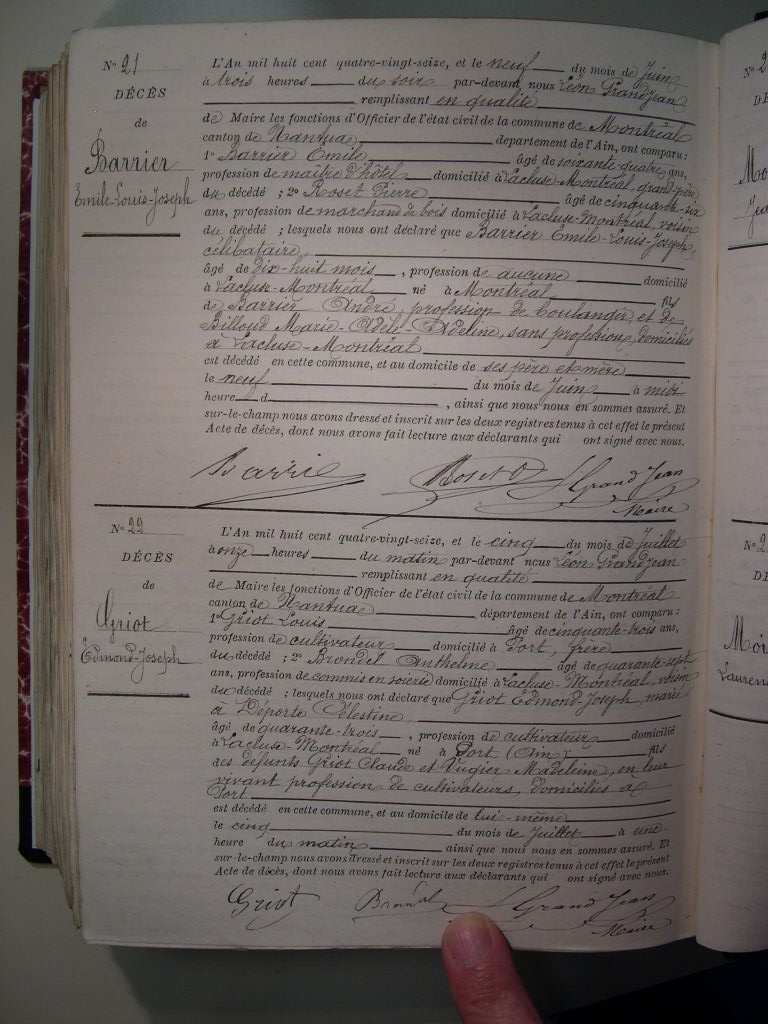 Nº 21
DÉCÈS
de
Barrier
Emile-Louis-Joseph
L'An mil huit cent quatre-vingt-seize, et le neuf du mois de Juin
à trois heures du soir par-devant nous Léon Grandjean
remplissant en qualité
de Maire les fonctions d'Officier de l'état civil de la commune de Montréal
canton de Nantua département de l'Ain, ont comparu:
1º Barrier Emile âgé de soixante-quatre ans,
profession de maître d'hôtel domicilié à Lacluse-Montréal, grand-père
du décédé ; 2º Roset Pierre âgé de cinquante-six
ans, profession de marchand de bois domicilié à Lacluse-Montréal, voisin
du décédé ; lesquels nous ont déclaré que Barrier Emile-Louis-Joseph,
célibataire,
âgé de dix-huit mois, profession de aucune domicilié
à Lacluse-Montréal né à Montréal fils
de Barrier André, profession de boulanger et de
Billoud Marie-Adèle-Adeline, sans profession, domiciliés
à Lacluse-Montréal
est décédé en cette commune, et au domicile de ses père et mère
le neuf du mois de Juin à midi
heure d , ainsi que nous nous en sommes assuré. Et
sur-le-champ nous avons dressé et inscrit sur les deux registres tenus à cet effet le présent
Acte de décès, dont nous avons fait lecture aux déclarants qui ont signé avec nous.
Barrie Roset L Grand Jean
Maire
Nº 22
DÉCÈS
de
Griot
Edmond-Joseph
L'An mil huit cent quatre-vingt-seize, et le cinq du mois de Juillet
à onze heures du matin par-devant nous Léon Grandjean
remplissant en qualité
de Maire les fonctions d'Officier de l'état civil de la commune de Montréal
canton de Nantua département de l'Ain, ont comparu:
1º Griot Louis âgé de cinquante-trois ans,
profession de cultivateur domicilié à Port, frère
du décédé ; 2º Brondel Anthelme âgé de quarante-sept
ans, profession de commis en soierie domicilié à Lacluse-Montréal, voisin
du décédé ; lesquels nous ont déclaré que Griot Edmond-Joseph, marié
à Déporte Célestine
âgé de quarante-trois, profession de cultivateur domicilié
à Lacluse-Montréal né à Port (Ain) fils
des défunts Griot Claude et Vugier Madeleine, en leur
vivant profession de cultivateurs, domiciliés à
Port
est décédé en cette commune, et au domicile de lui-même
le cinq du mois de Juillet à une
heure du matin ainsi que nous nous en sommes assuré. Et
sur-le-champ nous avons dressé et inscrit sur les deux registres tenus à cet effet le présent
Acte de décès, dont nous avons fait lecture aux déclarants qui ont signé avec nous.
Griot Brondel L Grand Jean
Maire